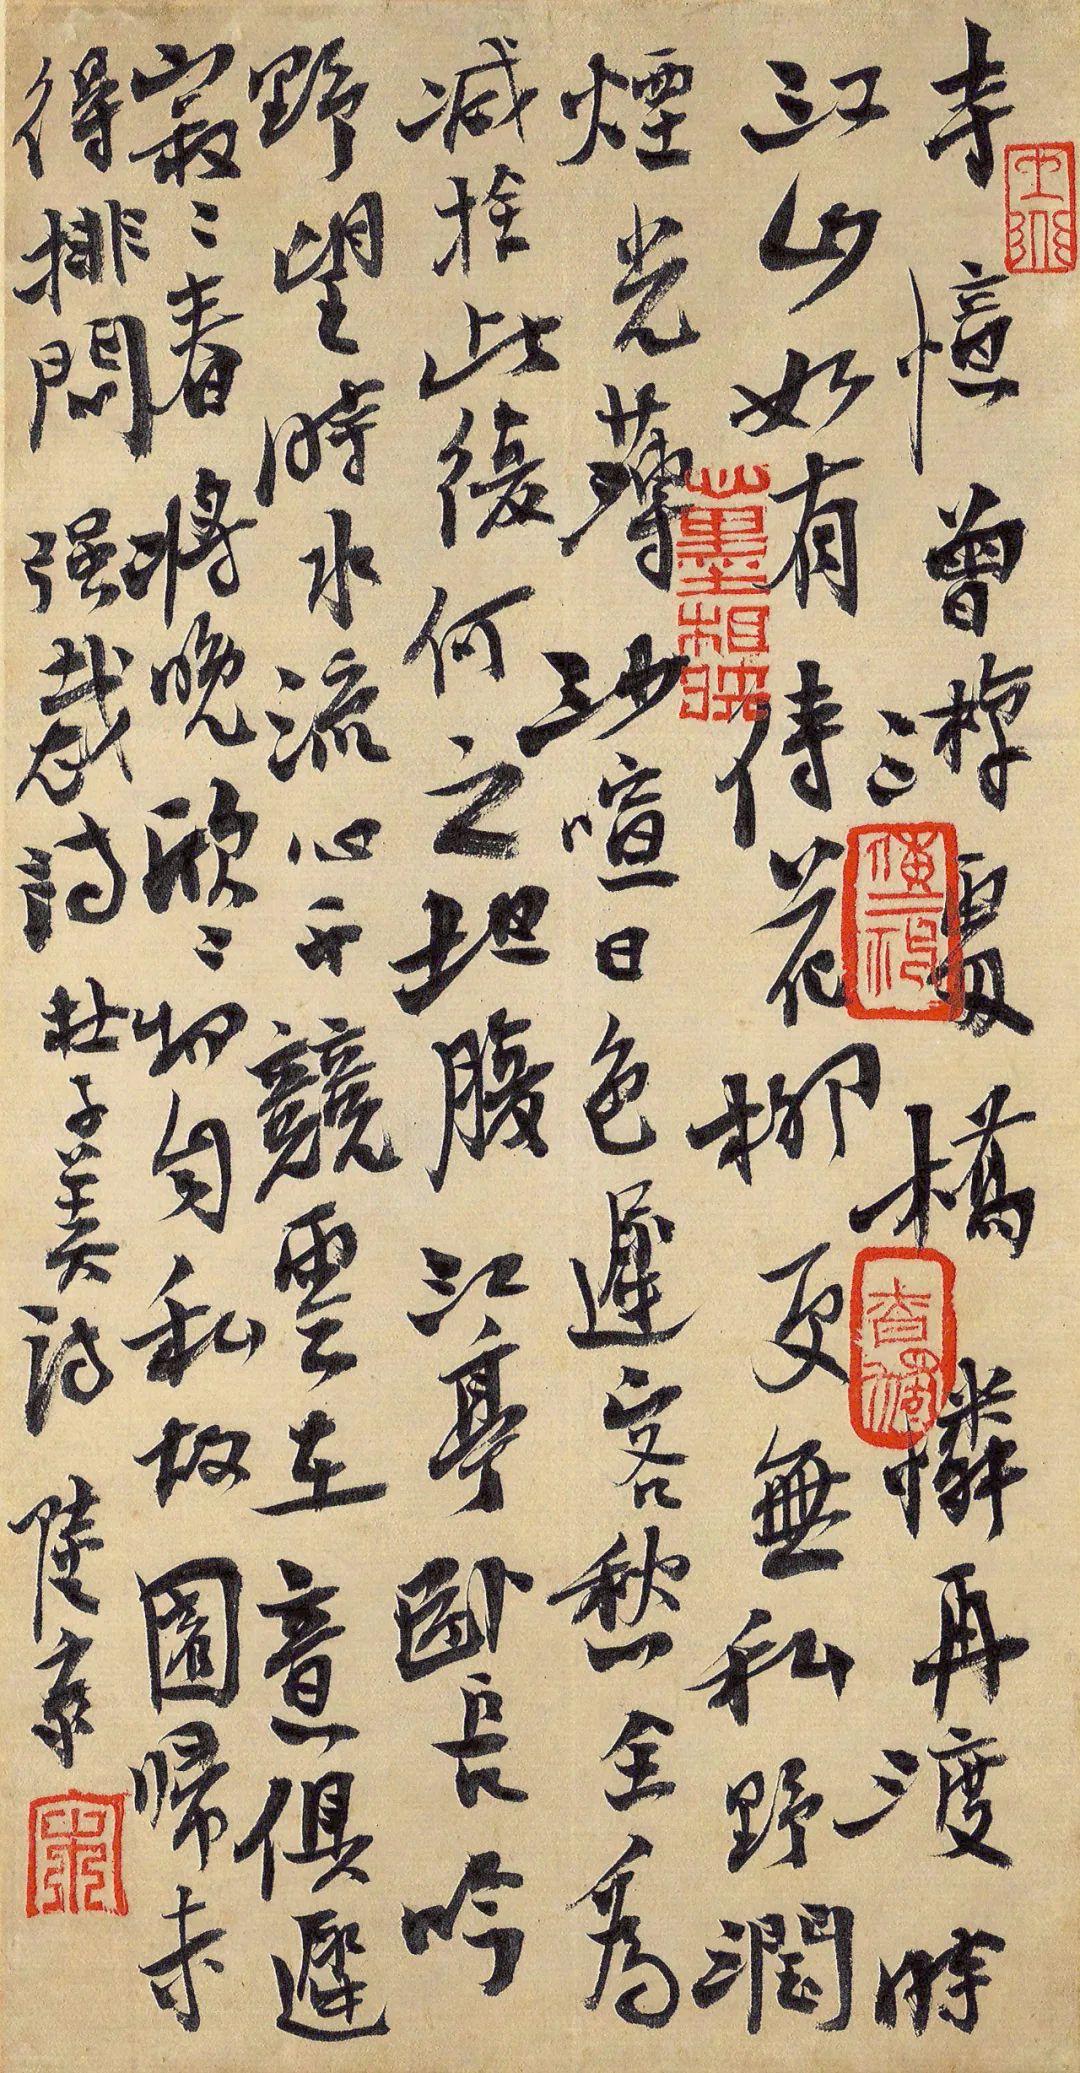 寺憶曾游處橋憐再渡時
江山如有待花柳更無私野潤
煙光薄沙喧日色遲客愁全為
減捨此復何之坦腹江亭臥長吟
野望時水流心不競雲在意俱遲
寂〻春將晚欣〻物自私故園歸未
得排悶强裁詩 杜子美詩 陸京